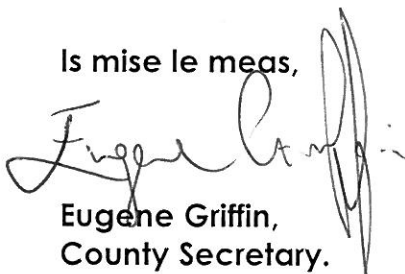 Is mise le meas,
Eugene Griffin
Eugene Griffin,
County Secretary.